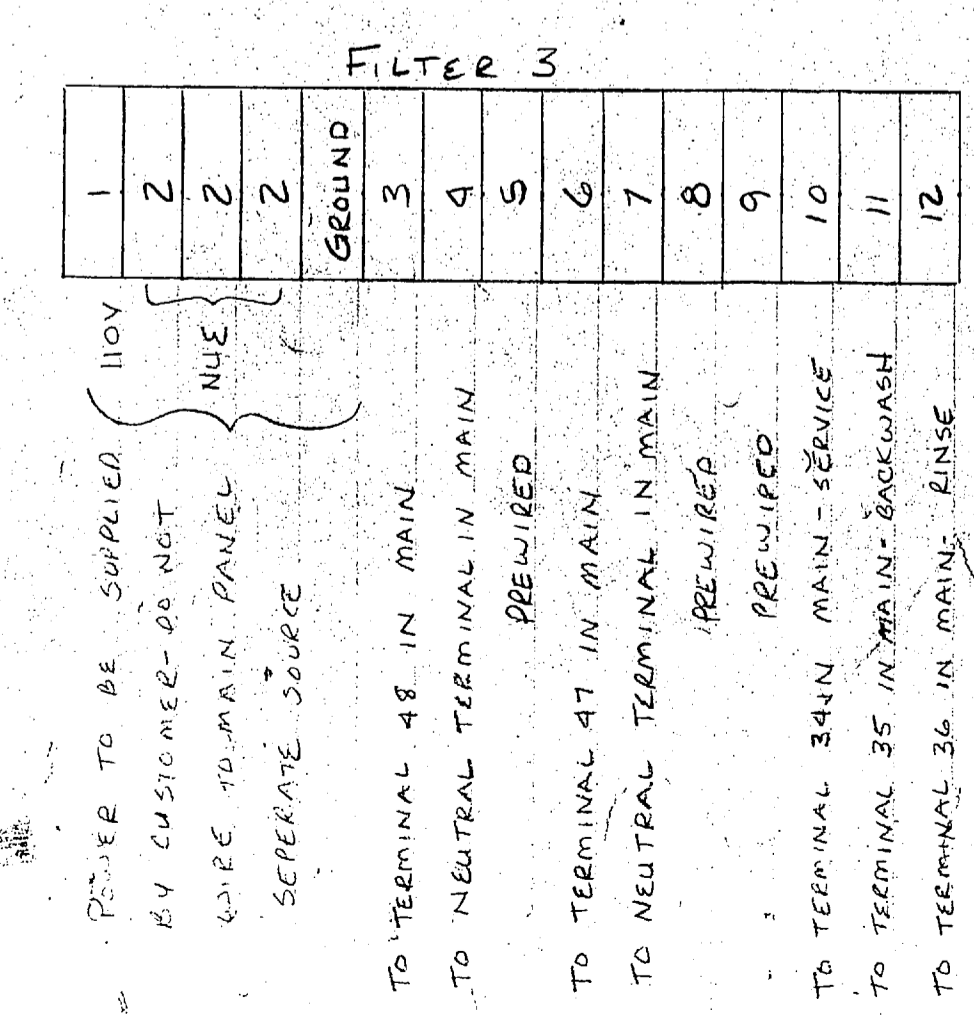 FILTER 3
1
2
2
2
GROUND
3
4
5
6
7
8
9
10
11
12
110V
NUE
POWER TO BE SUPPLIED
BY CUSTOMER - DO NOT
WIRE TO MAIN PANEL
SEPERATE SOURCE
TO TERMINAL 48 IN MAIN
TO NEUTRAL TERMINAL IN MAIN
PREWIRED
TO TERMINAL 47 IN MAIN
TO NEUTRAL TERMINAL IN MAIN
PREWIRED
PREWIRED
TO TERMINAL 34 IN MAIN - SERVICE
TO TERMINAL 35 IN MAIN - BACKWASH
TO TERMINAL 36 IN MAIN - RINSE